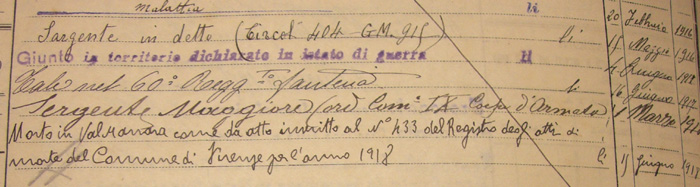 malattia lì
Sargente in detto (Circol. 404 G.M. 915) li 20 Febbraio 1916
Giunto in territorio dichiarato in istato di guerra li Maggio 916
Tale nel 60° Regg.to Fanteria li Giugno
Sergente Maggiore (ord. Com. IX Corpo d'Armata) Marzo
Morto in Valsanara come da atto inscritto al N° 433 del Registro degli atti di
morte del Comune di Firenze per l'anno 1918 li 15 Giugno 191